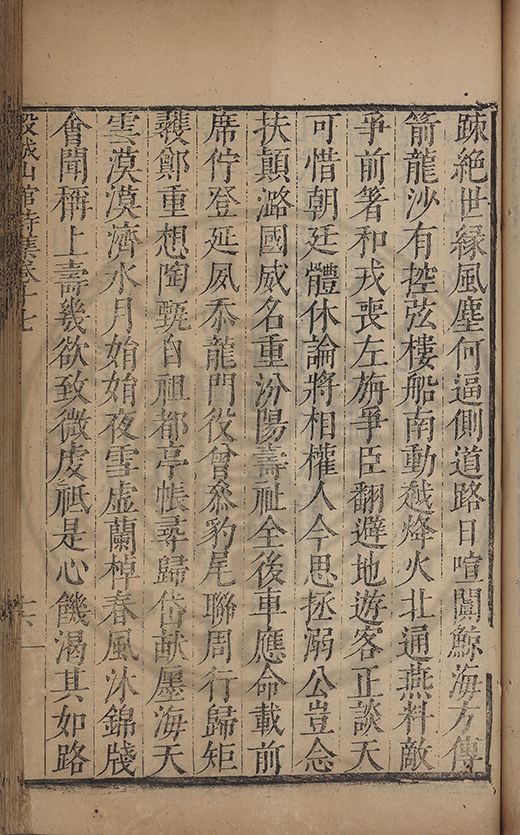 疎絶世縁風塵何逼側道路日喧闐鯨海方傳
箭龍沙有控弦樓船南動越烽火北通燕料敵
爭前箸和戎喪左旃爭臣翻避地遊客正談天
可惜朝廷體休論將相權人今思拯溺公豈念
扶顛潞國威名重汾陽壽祉全後車應命載前
席佇登延夙忝龍門役曾叅豹尾聯周行歸矩
鄭重想陶甄自袒都亭帳尋歸岱畎廛海天
雲漠漠濟水月娟娟夜雪虚蘭棹春風沐錦牋
會聞稱上壽幾欲致微虔祗是心饑渴其如路
穀城山館詩集卷十七